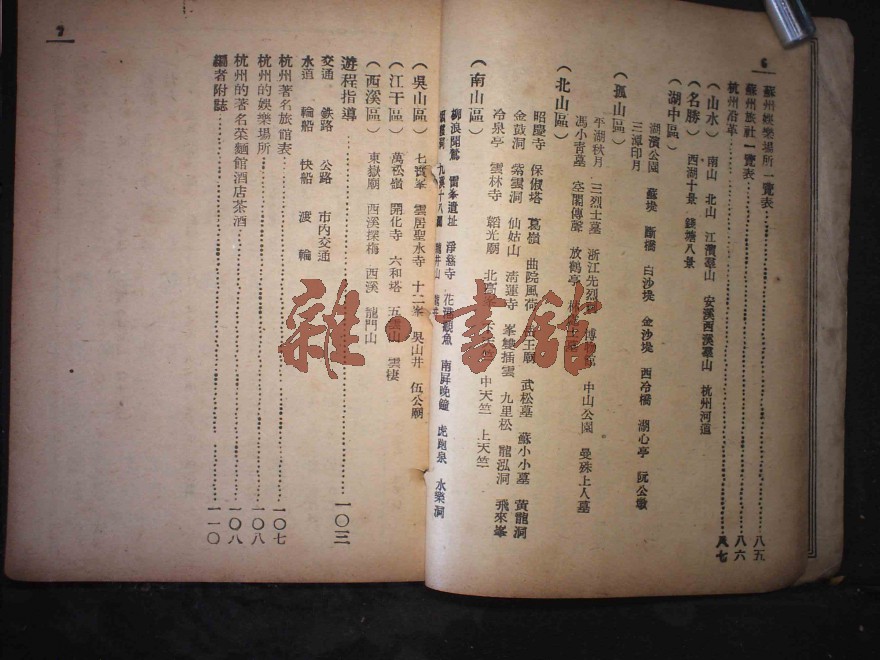 6
蘇州娛樂場所一覽表……八五
蘇州旅社一覽表……八六
杭州沿革……八七
（山水） 南山 北山 江濱羣山 安溪西溪羣山 杭州河道
（名勝） 西湖十景 錢塘八景
（湖中區）
湖濱公園 蘇堤 斷橋 白沙堤 金沙堤 西冷橋 湖心亭 阮公墩
三潭印月
（孤山區）
平湖秋月 三烈士墓 浙江先烈 中山公園 曼殊上人墓
馮小青墓 空閣傳聲 放鶴亭
（北山區）
昭慶寺 保俶塔 葛嶺 曲院風荷 王廟 武松墓 蘇小小墓 黃龍洞
金鼓洞 紫雲洞 仙姑山 清漣寺 峯雙插雲 九里松 龍泓洞 飛來峯
冷泉亭 雲林寺 韜光廟 北高 中天竺 上天竺
（南山區）
柳浪聞鶯 雷峯遺址 淨慈寺 花港觀魚 南屏晚鐘 虎跑泉 水樂洞
洞 九溪十八澗 龍井山
7
（吳山區） 七寶峯 雲居聖水寺 十二峯 吳山井 伍公廟
（江干區） 萬松嶺 開化寺 六和塔 五雲山 雲棲
（西溪區） 東嶽廟 西溪探梅 西溪 龍門山
遊程指導……一〇三
交通 鐵路 公路 市內交通
水道 輪船 快船 渡輪
杭州著名旅館表……一〇七
杭州的娛樂場所……一〇八
杭州的著名菜麵館酒店茶酒……一〇八
編者附誌……一一〇
雜·書館